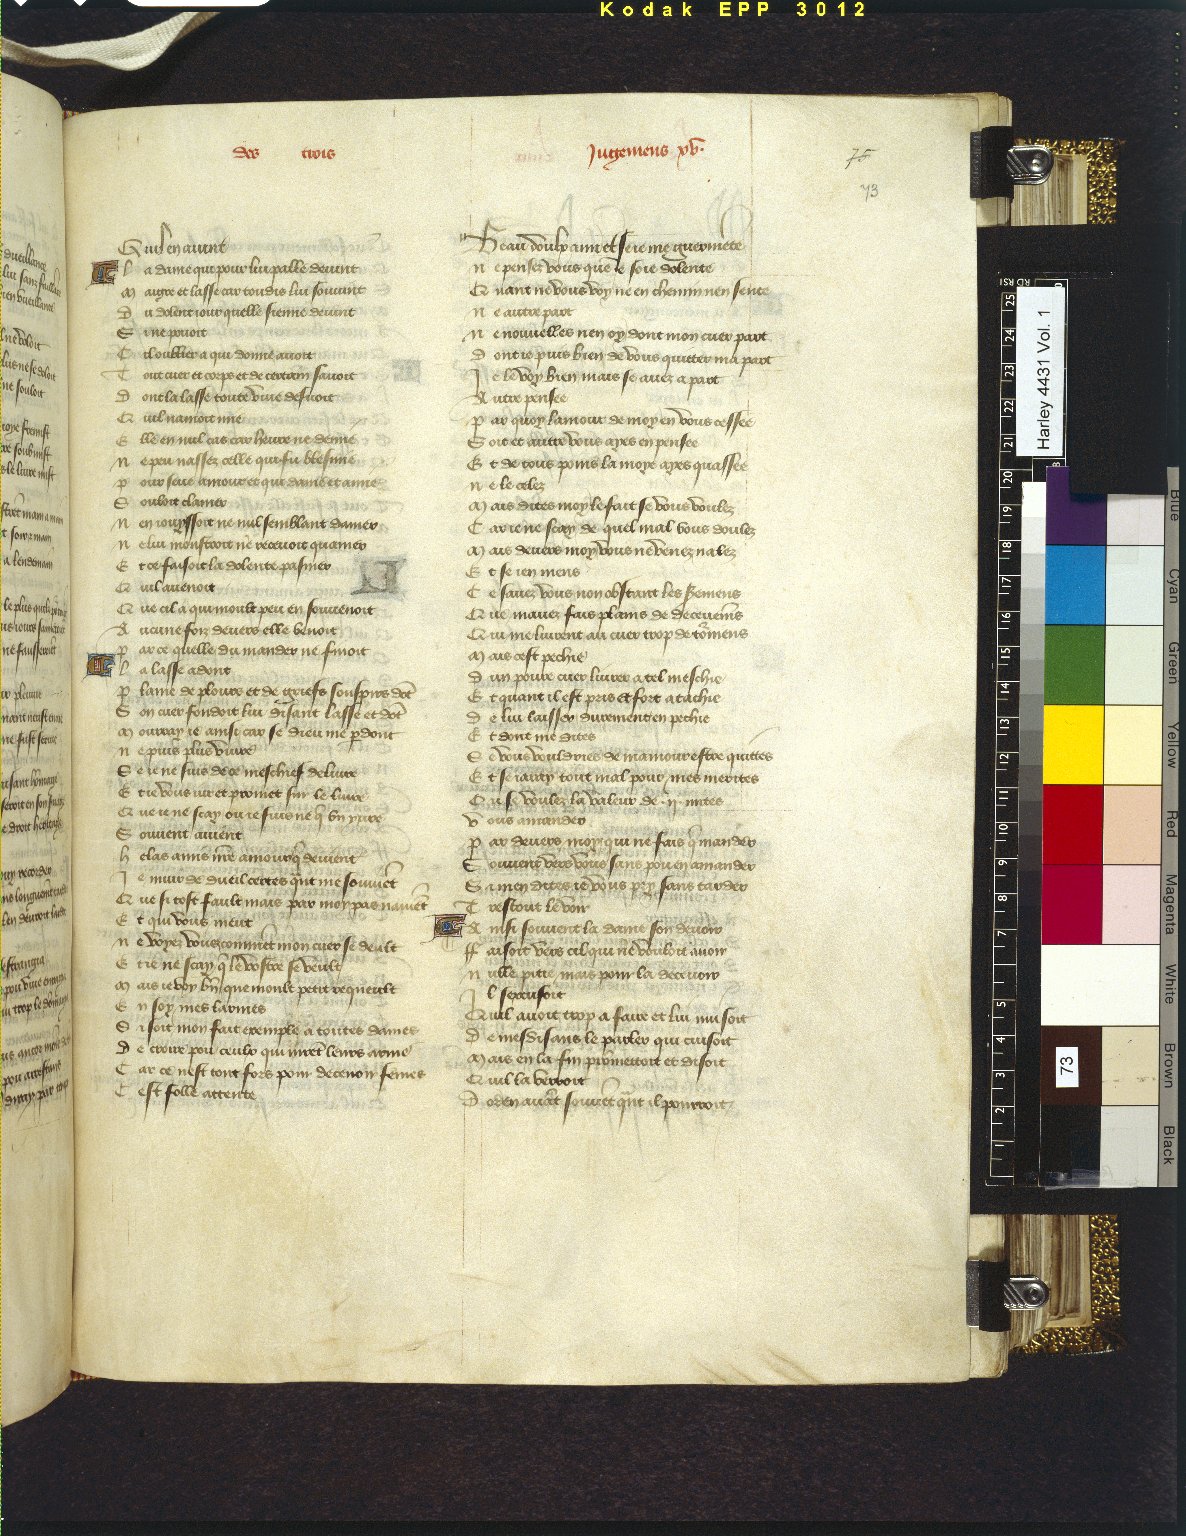 Kodak EPP 3012
des trois
Jugemens xv.
75
73
Quil en avint
La dame qui pour lui palle devint
Maigre et lasse car toudis lui souvint
Du dolent jour quelle sienne devint
Si ne povoit
Cil oublier a qui donné avoit
Tout cuer et corps et de certain savoit
Dont la lasse toute vive desvoit
Quil namoit mie
Elle en nul cas car heure ne demie
Ne peu nassez celle qui fu blesmie
Pour seue amour et qui dame et amie
Souloit clamer
Nen jouyssoit ne nul semblant damer
Ne lui monstroit ne recevoit quamer
Et ce faisoit la dolente pasmer
Quil avenoit
Que cil a qui moult peu en souvenoit
Aucune foiz devers elle venoit
Par ce quelle du mander ne finoit
La lasse adont
Plaine de plours et de griefs souspirs dont
Son cuer fondoit lui disant lasse et dont
Mourray je ainsi car se dieu me pardont
Ne puis plus vivre
Se je ne suis de ce meschief delivre
Et je vous jur et promet sur le livre
Que je ne scay ou je suis ne q̃ un yvre
Souvent avient
Helas amis mr̃e amour q̃ devient
Je muir de dueil certes q̃nt me souvient
Que si tost fault mais par moy pas navient
Et qui vous meut
Ne voyez vous comment mon cuer se deult
Et je ne scay q̃ le vostre se veult
Mais je voy bn̄ que moult petit requeult
En soy mes larmes
Si soit mon fait exemple a toutes dames
De croire pou ceulx qui juret leurs ame
Car ce nest tout fors pour decevoir femes
Cest folle attente
Beau doulx ami et se je me guermete
Ne pensez vous que je soie dolente
Quant ne vous voy ne en chemin nen sente
Ne autre part
Ne nouvelles nen oy dont mon cuer part
Dont je puis bien de vous quitter ma part
Je le voy bien mais se avez a part
Autre pensee
Par quoy lamour de moy en vous cessee
Soit et autre vous ayes en pensee
Et de tous poins la moye ayes quassee
Ne le celez
Mais dites moy le fait se vous voulez
Car je ne scay de quel mal vous doulez
Mais devers moy vous ne venez nalez
Et se jen mens
Ce savez vous non obstant les semens
Que mavez fais plains de decevemens
Qui me livrent au cuer trop de tormens
Mais cest pechie
Dun povre cuer livrer a tel meschie
Et quant il est pris et fort atachie
De lui laissier durement en pechie
Et dont me dites
Se vous vouldries de mamour estre quittes
Et se jauray tout mal pour mes merites
Ou se voulez la valeur de .ij. mites
Vous amander
Par devers moy qui ne fais q̃ mander
Souvent vers vous sans pou en amander
Si men dites je vous pry sans tarder
Trestout le voir
Ainsi souvent la dame son devoir
Faisoit vers cil qui ne vouloit avoir
Nulle pitie mais pour la decevoir
Il sexcusoit
Quil avoit trop a faire et lui nuisoit
De mesdisans le parler qui cuisoit
Mais en la fin promettoit et disoit
Quil la verroit
Dorenavant souvet q̃nt il pourroit
Harley 4431 Vol. 1
73
Blue
Cyan
Green
Yellow
Red
Magenta
White
Brown
Black